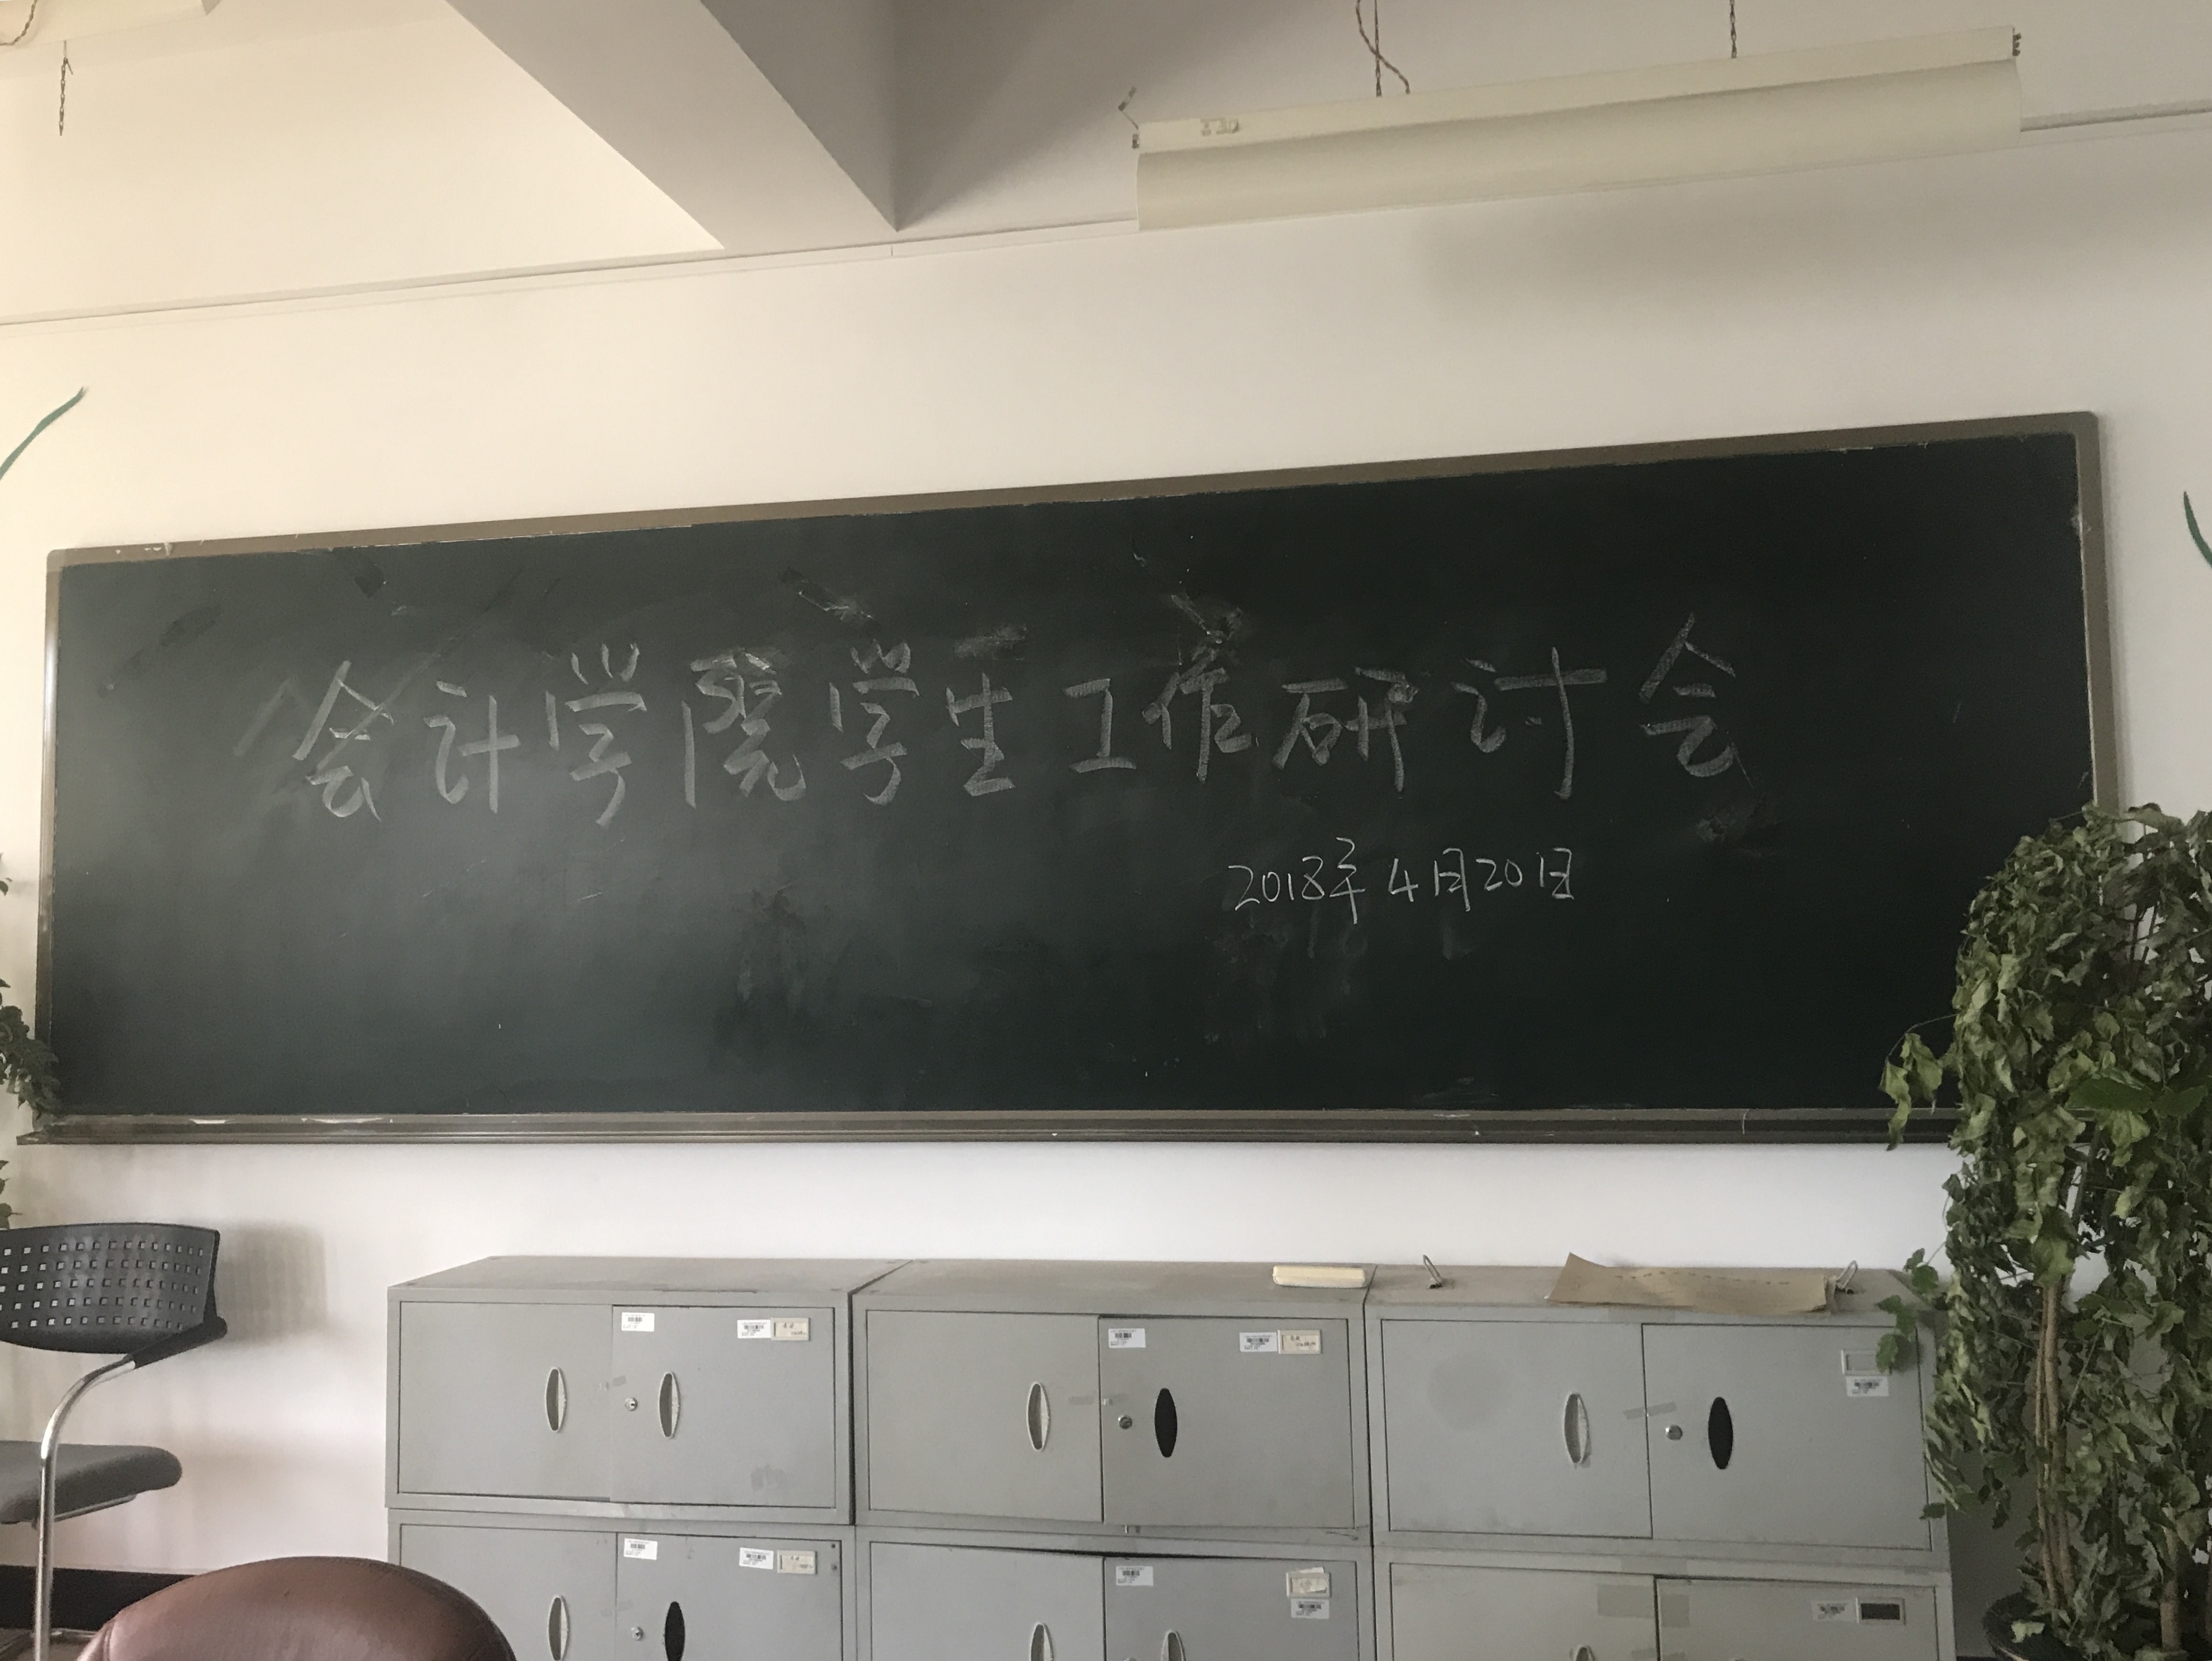 会计学院学生工作研讨会
2018年4月20日